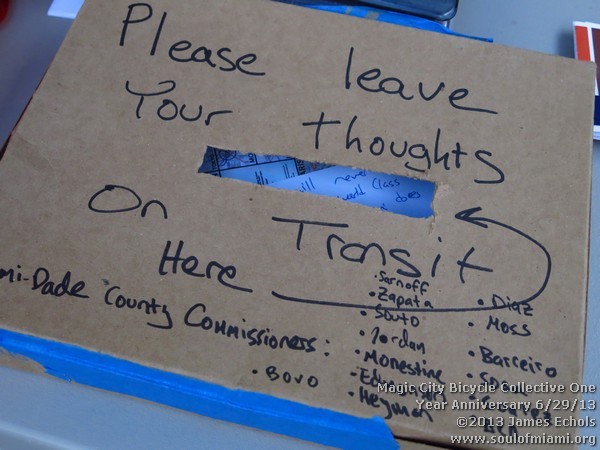 Please leave
Your thoughts
will never
world class
does
On Transit
Here
mi-Dade County Commissioners:
• Bovo
• Sarnoff
• Zapata
• Souto
• Jordan
• Monestine
• Heyman
• Diaz
• Moss
• Barreiro
Magic City Bicycle Collective One
Year Anniversary 6/29/13
©2013 James Echols
www.soulofmiami.org